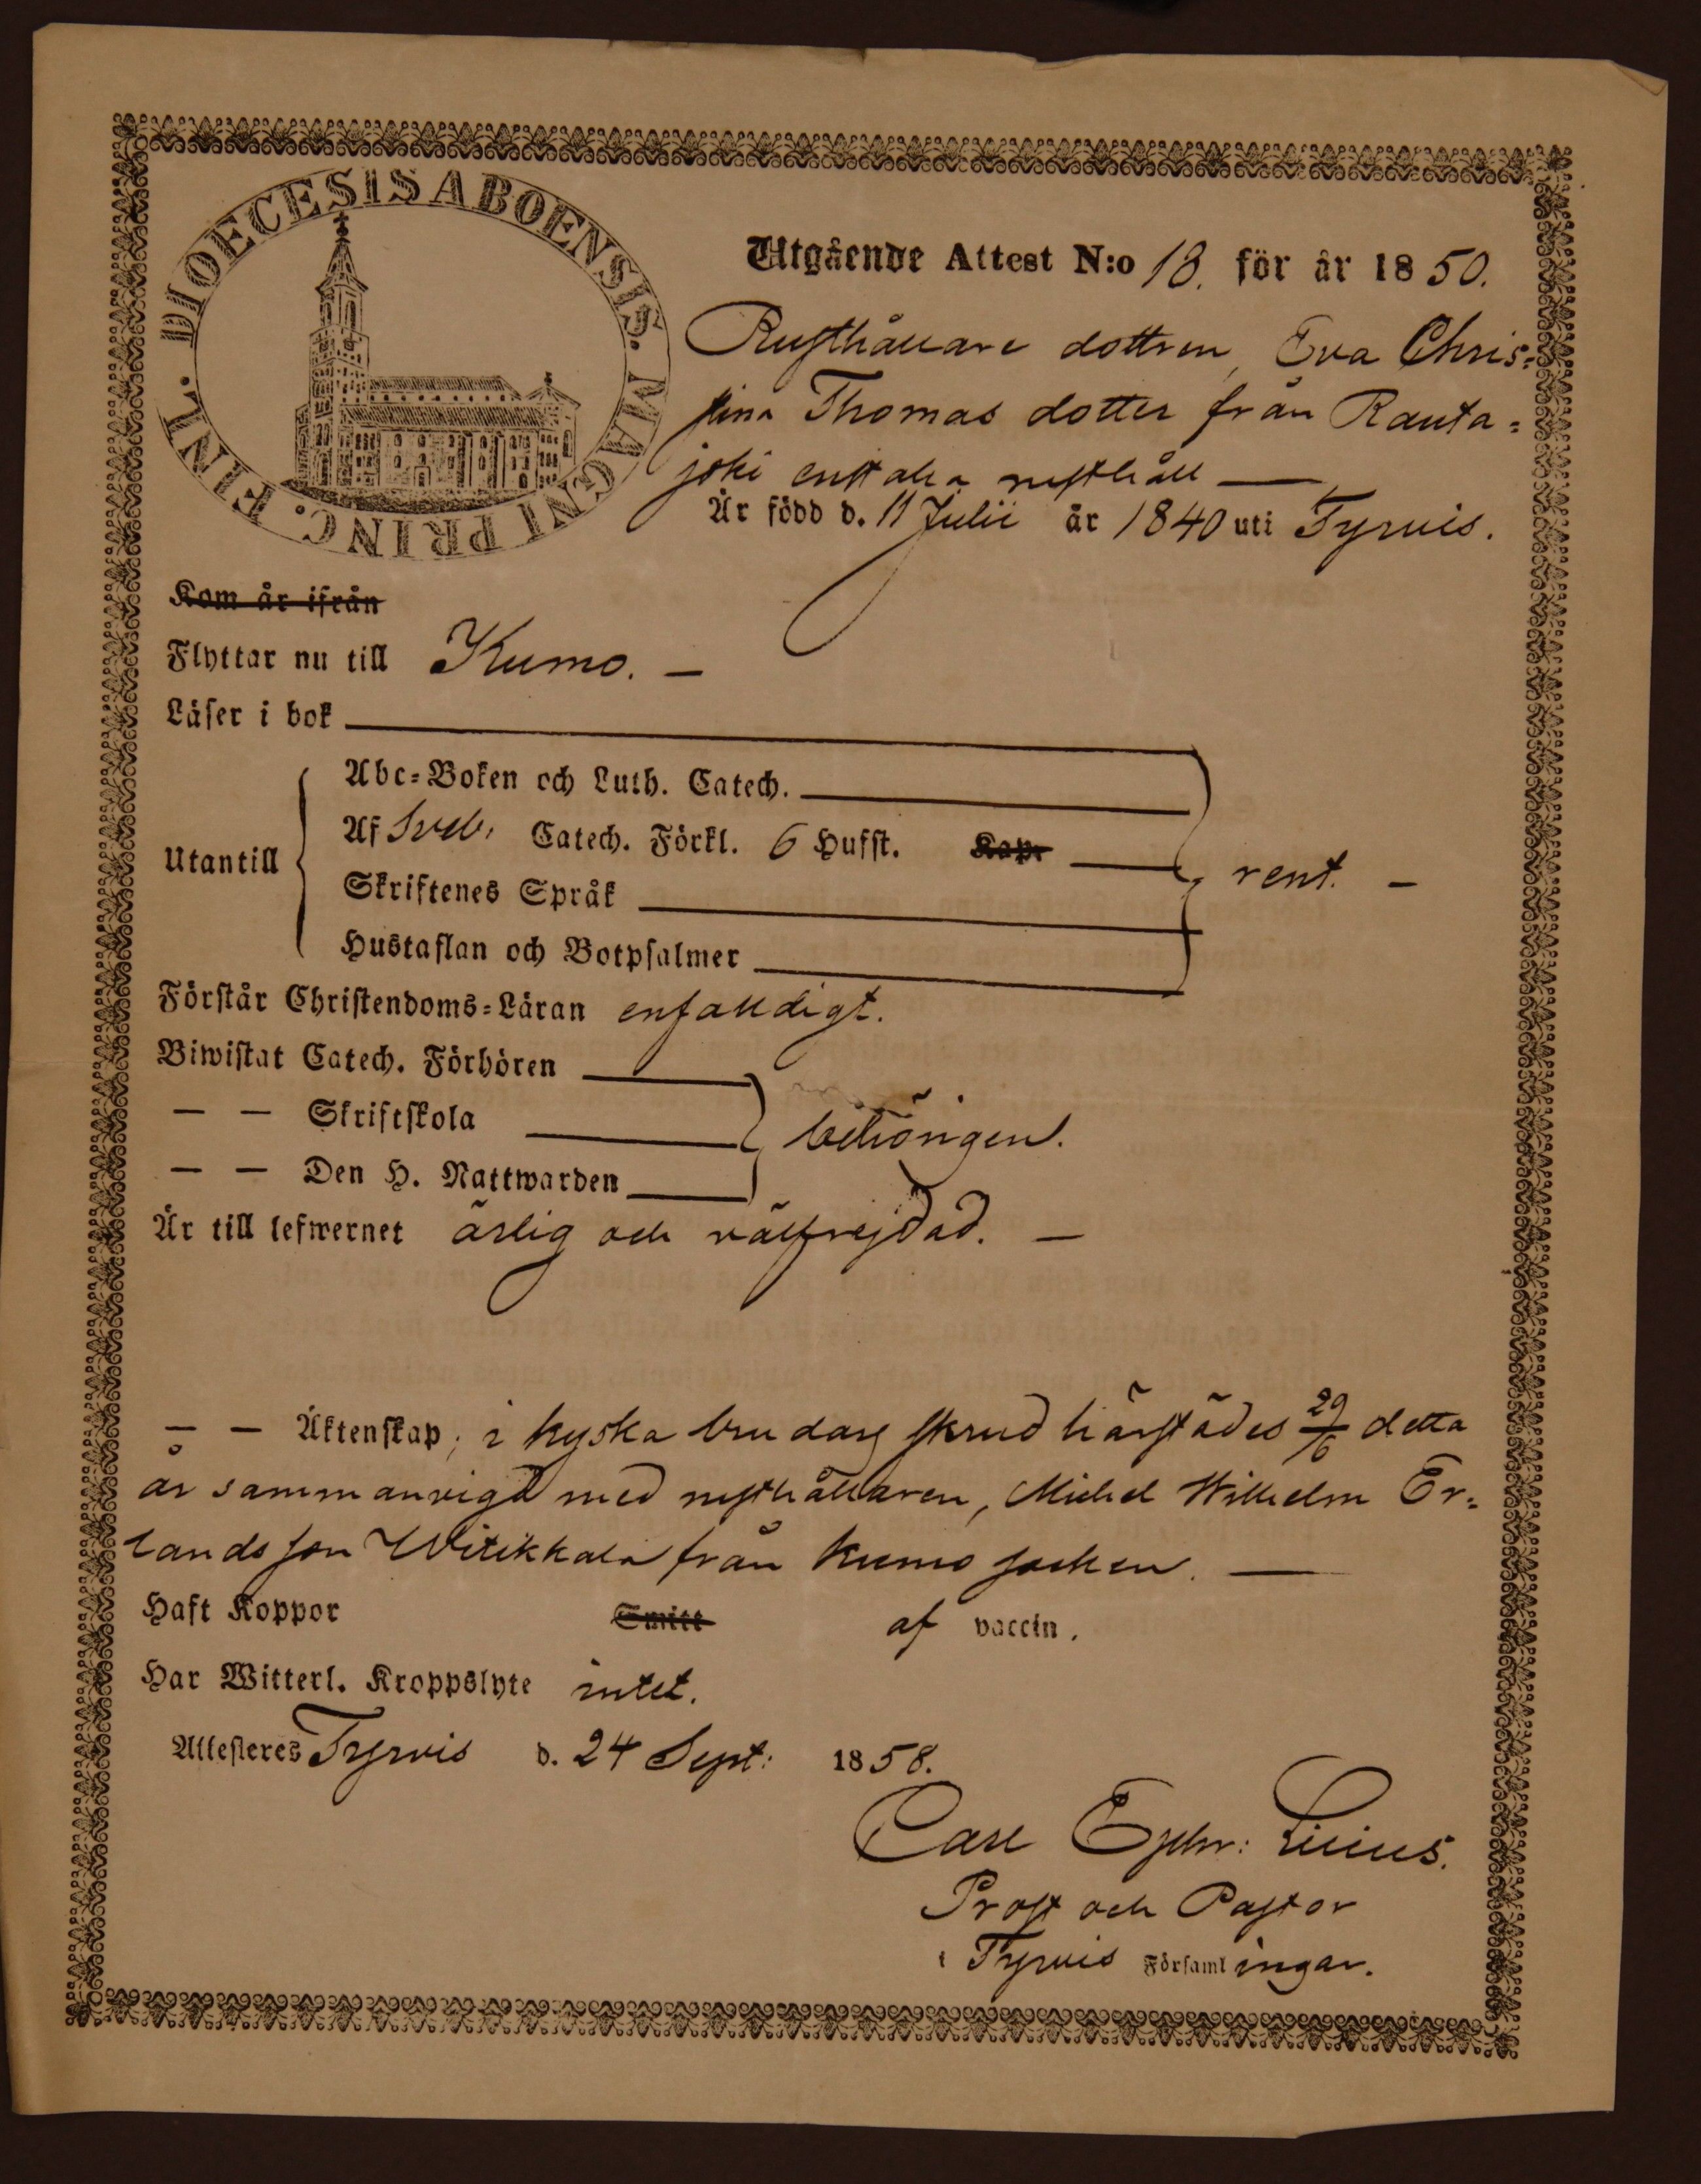 DIOECESIS ABOENSIS. MAGNI PRINC. FINL.
Utgående Attest N:o 18. för år 1850.
Rusthållare dottren, Eva Chris=
tina Thomas dotter från Rauta=
joki enstaka rusthåll —
Är född d. 11 Julii år 1840 uti Tyrvis.
Kom år ifrån
Flyttar nu till Kumo. —
Läser i bok
Abc=Boken och Luth. Catech.
Af Sveb. Catech. Förkl. 6 Hufst. Kap.
Utantill
rent. —
Skriftenes Språk
Hustaflan och Botpsalmer
Förstår Christendoms=Läran enfalldigt.
Biwistat Catech. Förhören
— — Skriftskola
behörigen.
— — Den H. Nattwarden
Är till lefwernet ärlig och välfrejdad. —
— — Äktenskap; i kyska brudars skrud härstädes 29/6 detta
år sammanvigd med rusthållaren, Michel Wilhelm Er=
landsson Witikkala från Kumo socken. —
Haft Koppor Smitt af vaccin.
Har Witterl. Kroppslyte intet.
Attesteres Tyrvis d. 24 Sept: 1858.
Carl Ephr: Lilius.
Prost och Pastor
i Tyrvis Församlingar.